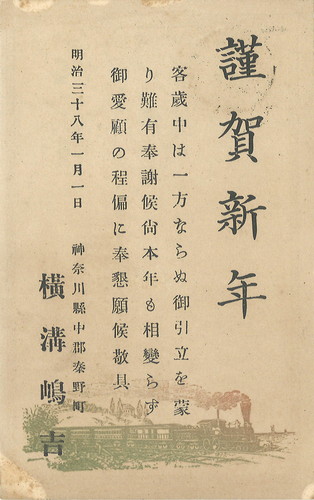 謹賀新年
客歲中は一方ならぬ御引立を蒙
り難有奉謝候尙本年も相變らず
御愛顧の程偏に奉懇願候敬具
明治三十八年一月一日
神奈川縣中郡秦野町
橫溝嶋吉